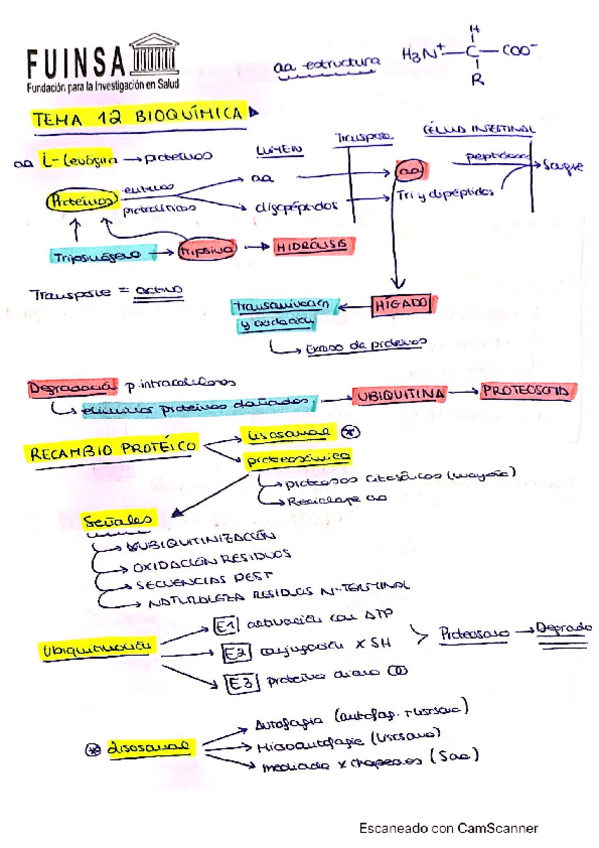 FUINSA
Fundación para la Investigación en Salud
aa estructura
H
H3N+ — C — COO-
R
TEMA 12 BIOQUÍMICA
aa L-Levógiro → proteínas
LUMEN
Transporte
CÉLULA INTESTINAL
Proteínas
aa
aa
peptidasas
Sangre
proteolíticas
oligopéptidos
Tri y dipéptidos
Tripsinógeno → Tripsina → HIDRÓLISIS
Transporte = activo
Transaminación y oxidación
HÍGADO
Exceso de proteínas
Degradación p. intracelulares
eliminar proteínas dañadas → UBIQUITINA → PROTEOSOMA
RECAMBIO PROTÉICO
Lisosomal *
proteosómica
proteosas citosólicas (mayoría)
Reciclaje aa
Señales
UBIQUITINIZACIÓN
OXIDACIÓN RESIDUOS
SECUENCIAS PEST
NATURALEZA RESIDUOS N-TERMINAL
Ubiquitinización
E1 activación con ATP
E2 conjugación x SH
E3 proteína diana
Proteosoma → Degrada
* Lisosomal
Autofagia (autofag. + lisosoma)
Microautofagia (lisosoma)
mediada x chaperonas
Escaneado con CamScanner